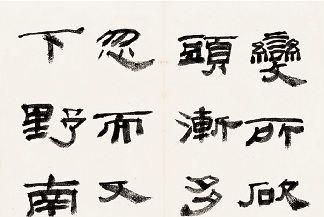 變所
頭漸多
忽而又
下野南